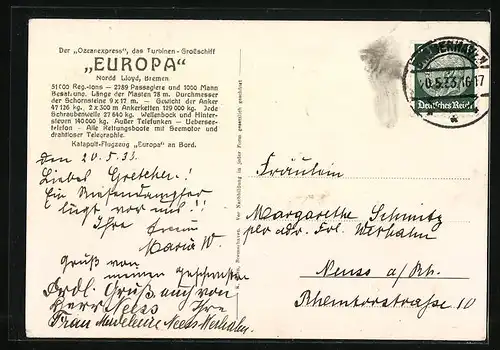 Der „Ozeanexpress", das Turbinen - Großschiff
„EUROPA"
Nordd Lloyd, Bremen
51000 Reg.-tons — 2289 Passagiere und 1000 Mann
Besatzung. Länge der Masten 78 m. Durchmesser
der Schornsteine 9 x 17 m. — Gewicht der Anker
47 126 kg, 2 x 300 m Ankerketten 129 000 kg. Jede
Schraubenwelle 27 640 kg. Wellenbock und Hinter-
steven 140 000 kg. Außer Telefunken — Uebersee-
telefon - Alle Rettungsboote mit Seemotor und
drahtloser Telegraphie.
Katapult-Flugzeug „Europa" an Bord.
Den 20.5.33.
Liebes Gretchen!
Ein Riesendampfer
liegt vor uns!!
Ihre
Maria W.
Gruß von
meinen Geschwistern
Frdl. Gruß auch von
Herr Neess Ihre
Frau Madeleine Neess Werhahn.
Deutsches Reich
20.5.33.16-17
Fräulein
Margarethe Schmitz
per adr. Frl. Werhahn
Neuss a/Rh.
Rheintorstrasse 10